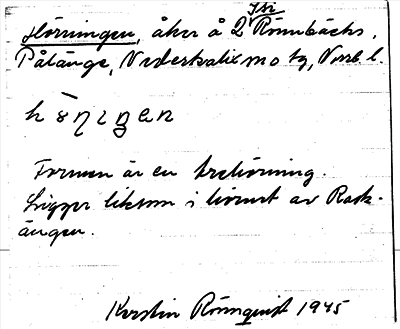 Hörningen, åker å 2 Rönnbäcks,
Pålänge, Nederkalix
hȫŋiŋen
Formen är en trehörning.
Ligger liksom i hörnet av Rask-
ängen.
Kerstin Rönnquist 1945